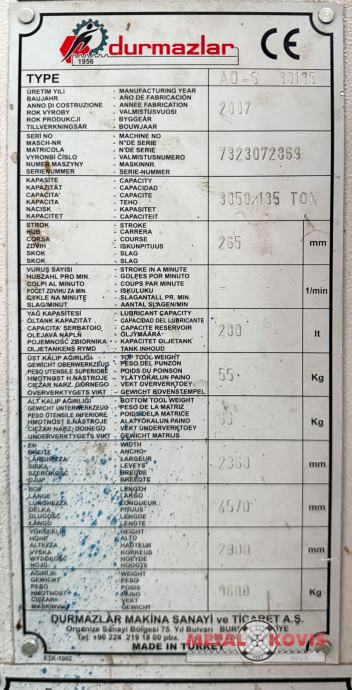 1956
durmazlar
CE
TYPE AD-S 30135
ÜRETİM YILI - MANUFACTURING YEAR
BAUJAHR - AÑO DE FABRICACIÓN
ANNO DI COSTRUZIONE - ANNEE FABRICATION
ROK VÝROBY - VALMISTUSVUOSI
ROK PRODUKCJI - BYGGEÅR
TILLVERKNINGSÅR - BOUWJAAR
2007
SERİ NO - MACHINE NO
MASCH-NR - N°DE SERIE
MATRICOLA - N°DE SERIE
VYROBNÍ ČÍSLO - VALMISTUSNUMERO
NUMER MASZYNY - MASKINNR.
SERIENUMMER - SERIE-NUMMER
7323072369
KAPASİTE - CAPACITY
KAPAZITÄT - CAPACIDAD
CAPACITA' - CAPACITE
KAPACITA - TEHO
NACISK - KAPASITET
KAPACITET - CAPACITEIT
3050x135 TON
STROK - STROKE
HUB - CARRERA
CORSA - COURSE
ZDVIH - ISKUNPITUUS
SKOK - SLAG
SKOK. - SLAG
265 mm
VURUŞ SAYISI - STROKE IN A MINUTE
HUBZAHL PRO MIN. - GOLPES POR MINUTO
COLPI AL MINUTO - COUPS PAR MINUTE
POČET ZDVIHU ZA MIN. - ISKULUKU
CYKLE NA MINUTĘ - SLAGANTALL PR. MIN
SLAG/MINUT - AANTAL SLAGEN/MIN
- 1/min
YAĞ KAPASİTESİ - LUBRICANT CAPACITY
ÖLTANK KAPAZITÄT - CAPACIDAD LUBRICANTE
CAPACITA' SERBATOIO - CAPACITE RESERVOIR
OLEJAVÁ NÁPLŇ - ÖLJYMÄÄRA
POJEMNOŚĆ ZBIORNIKA - KAPASITET OLJETANK
OLJETANKENS RYMD - TANK INHOUD
200 lt
ÜST KALIP AĞIRLIĞI - TOP TOOL WEIGHT
GEWICHT OBERWERKZEUG - PESO DEL PUNZÓN
PESO UTENSILE SUPERIORE - POIDS DU POINSON
HMOTNOST H.NÁSTROJE - YLÄTYÖKALUN PAINO
CIĘŻAR NARZ. GÓRNEGO - VEKT OVERVERKTOEY
ÖVERVERKTYGETS VIKT - GEWICHT BOVENSTEMPEL
55 Kg
ALT KALIP AĞIRLIĞI - BOTTOM TOOL WEIGHT
GEWICHT UNTERWERKZEUG - PESO DE LA MATRIZ
PESO UTENSILE INFERIORE - POIDS DE LA MATRICE
HMOTNOST S.NÁSTROJE - ALATYÖKALUN PAINO
CIĘŻAR NARZ. DOLNEGO - VEKT UNDERVERKTOEY
UNDERVERKTYGETS VIKT - GEWICHT MATRIJS
Kg
EN - WIDTH
BREITE - ANCHO
LARGHEZZA - LARGEUR
ŠIRKA - LEVEYS
SZEROKOŚĆ - BREDDE
DJUP - BREEDTE
mm
BOY - LENGTH
LÄNGE - LARGO
LUNGHEZZA - LONGUEUR
DÉLKA - PITUUS
DŁUGOŚĆ - LENGDE
LÄNGD - LENGTE
4570 mm
YÜKSEKLİK - HEIGHT
HÖHE - ALTO
ALTEZZA - HAUTEUR
VÝŠKA - KORKEUS
WYSOKOŚĆ - HOEYDE
HÖJD - HOOGTE
2900 mm
AĞIRLIK - WEIGHT
GEWICHT - PESO
PESO - POIDS
HMOTNOST - PAINO
CIĘŻAR - VEKT
MASKINVIKT - GEWICHT
Kg
DURMAZLAR MAKİNA SANAYİ ve TİCARET A.Ş.
Organize Sanayi Bölgesi 75. Yıl Bulvarı
Tel: +90 224 219 18 00 pbx.
METAL KOVIS
MADE IN TURKEY
ETK-1002